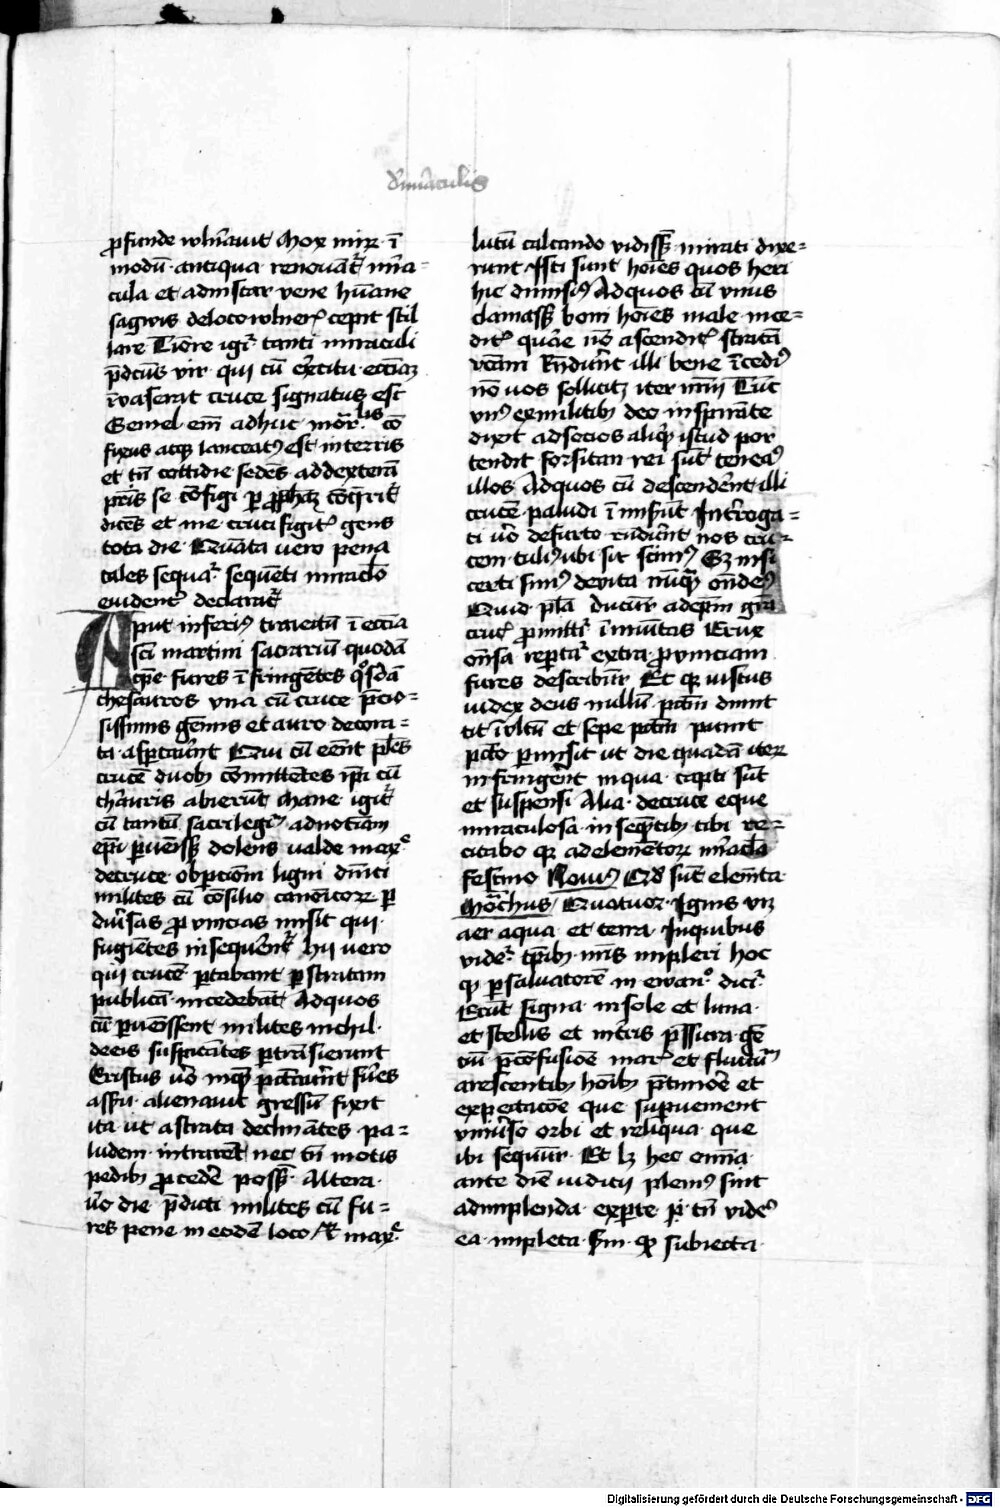 d' miraculis
ꝓfunde wln̄auit Mox mirꝝ ī
modū antiqua renouāt᷑ mi᷑a-
cula et ad instar vene hūane
sagwis de loco wlnerꝭ cepit stil
lare Tiōre igi᷑ tanti miraculi
p̄dcūs vir qui cū ex̄citu ecciaꝫ
īvaserat cruce signatus est
Semel em̄ adhuc mor᷑lis cō
fixus atqꝫ lanceatꝰ est in terris
et tn̄ cottidie sedēs ad dexterā
pr̄is se cōfigi ꝑ ꝓphetā cōq̄rit᷑
dicēs et me crucifigitꝭ gens
tota die Quāta vero pena
tales sequa᷑ sequēti miraclo
euident᷑ declarat᷑
Aput inferiꝰ traiectū ī eccia
sc̄i martini sacrariū quodā
tp̄e fures ī fringētes qᵒsdā
thesauros vna cū cruce p̄cio-
sissimis gēmis et auro decora-
ta asportau̅nt Qui cū eēnt pl̄es
crucē duobꝫ cōmittētes ip̄i cū
thauris abierūt Mane igit᷑
cū tantū sacrilegiū ad noticiam
ep̄i ꝑuenissꝫ dolens valde max᷑ᵉ
de cruce ob porcōm ligni dn̄ici
milites cū cōsilio canonicorꝫ ꝑ
diu̅sas ꝓvincias misit qui
fugiētes inseque̅nt᷑ Hii vero
qui crucē portabant ꝑ stratam
publicā incedebāt Ad quos
cū ꝑuenissent milites nichil
de eis suspicātes ꝑtrāsierunt
Cristus v̄o in quē peccau̅nt fūes
assꝫ alienauit gressū fixit
ita vt a strata declinātes pa-
ludem intrarēt nec tn̄ motis
pedibꝫ ꝓcedē possꝫ Altera
v̄o die p̄dicti milites cū fu-
res pene in eodē loco et max᷑ᵉ
lutū calcando vidissꝫ mirati dixe-
runt Isti sunt hoīes quos heri
hic dimisimꝰ Ad quos cū vnus
clamassꝫ boni hoīes male ince-
ditꝭ quare nō ascenditꝭ stratā
vr̄am Rn̄du̅nt illi bene īcedimꝰ
nō vos sollicitꝫ iter nr̄m Tūc
vnꝰ ex militibꝫ deo inspirāte
dixit ad socios aliqꝫ istud por
tendit forsitan rei sūt teneamꝰ
illos Ad quos cū descendēnt illi
crucē paludi īmisēnt Introga-
ti v̄o de furto rn̄diēnt nos cru-
cem tulimꝰ vbi sit scimꝰ Sꝫ nisi
certi simꝰ de vita nūqꝫ on̄demꝰ
Quid pla ducūr ad ep̄m gr̄a
crucꝭ ꝓmitti᷑ īmūitas Crux
on̄sa reperta᷑ extra ꝓvinciam
fures describūr Et qꝫ iustus
iudex deus nullū pctm̄ dimit
tit īvltū et sepe pctm̄ punit
pctō ꝑmisit vt die quadā iterꝫ
infringēnt in qua capti sūt
et suspensi Alia de cruce eque
miraculosa in seqn̄tibꝫ tibi re-
citabo qꝫ ad elementorꝫ mi᷑acla
festino Nouiꝰ Qd̄ sūt elem̄ta
Mōchus Quatuor Ignis vꝫ
aer aqua et terra In quibus
vide᷑ tp̄ibꝫ nr̄is impleri hoc
qꝫ ꝑ saluatorē in ewanᵒ dici᷑
Erūt signa in sole et luna
et stellis et in tr̄is p̄ssura gē
tiū p̄ cōfusiōe marꝭ et fluctuū
arescentibꝫ hoībꝫ p̄ timōe et
expectacōe que supuenient
vniu̅so orbi et reliqua que
ibi sequn̄r Et lꝫ hec omnia
ante diē iudicij pleniꝰ sint
adimplenda ex parte tn̄ videmꝰ
ea impleta sm̄ qꝫ subiecta
Digitalisierung gefördert durch die Deutsche Forschungsgemeinschaft - DFG